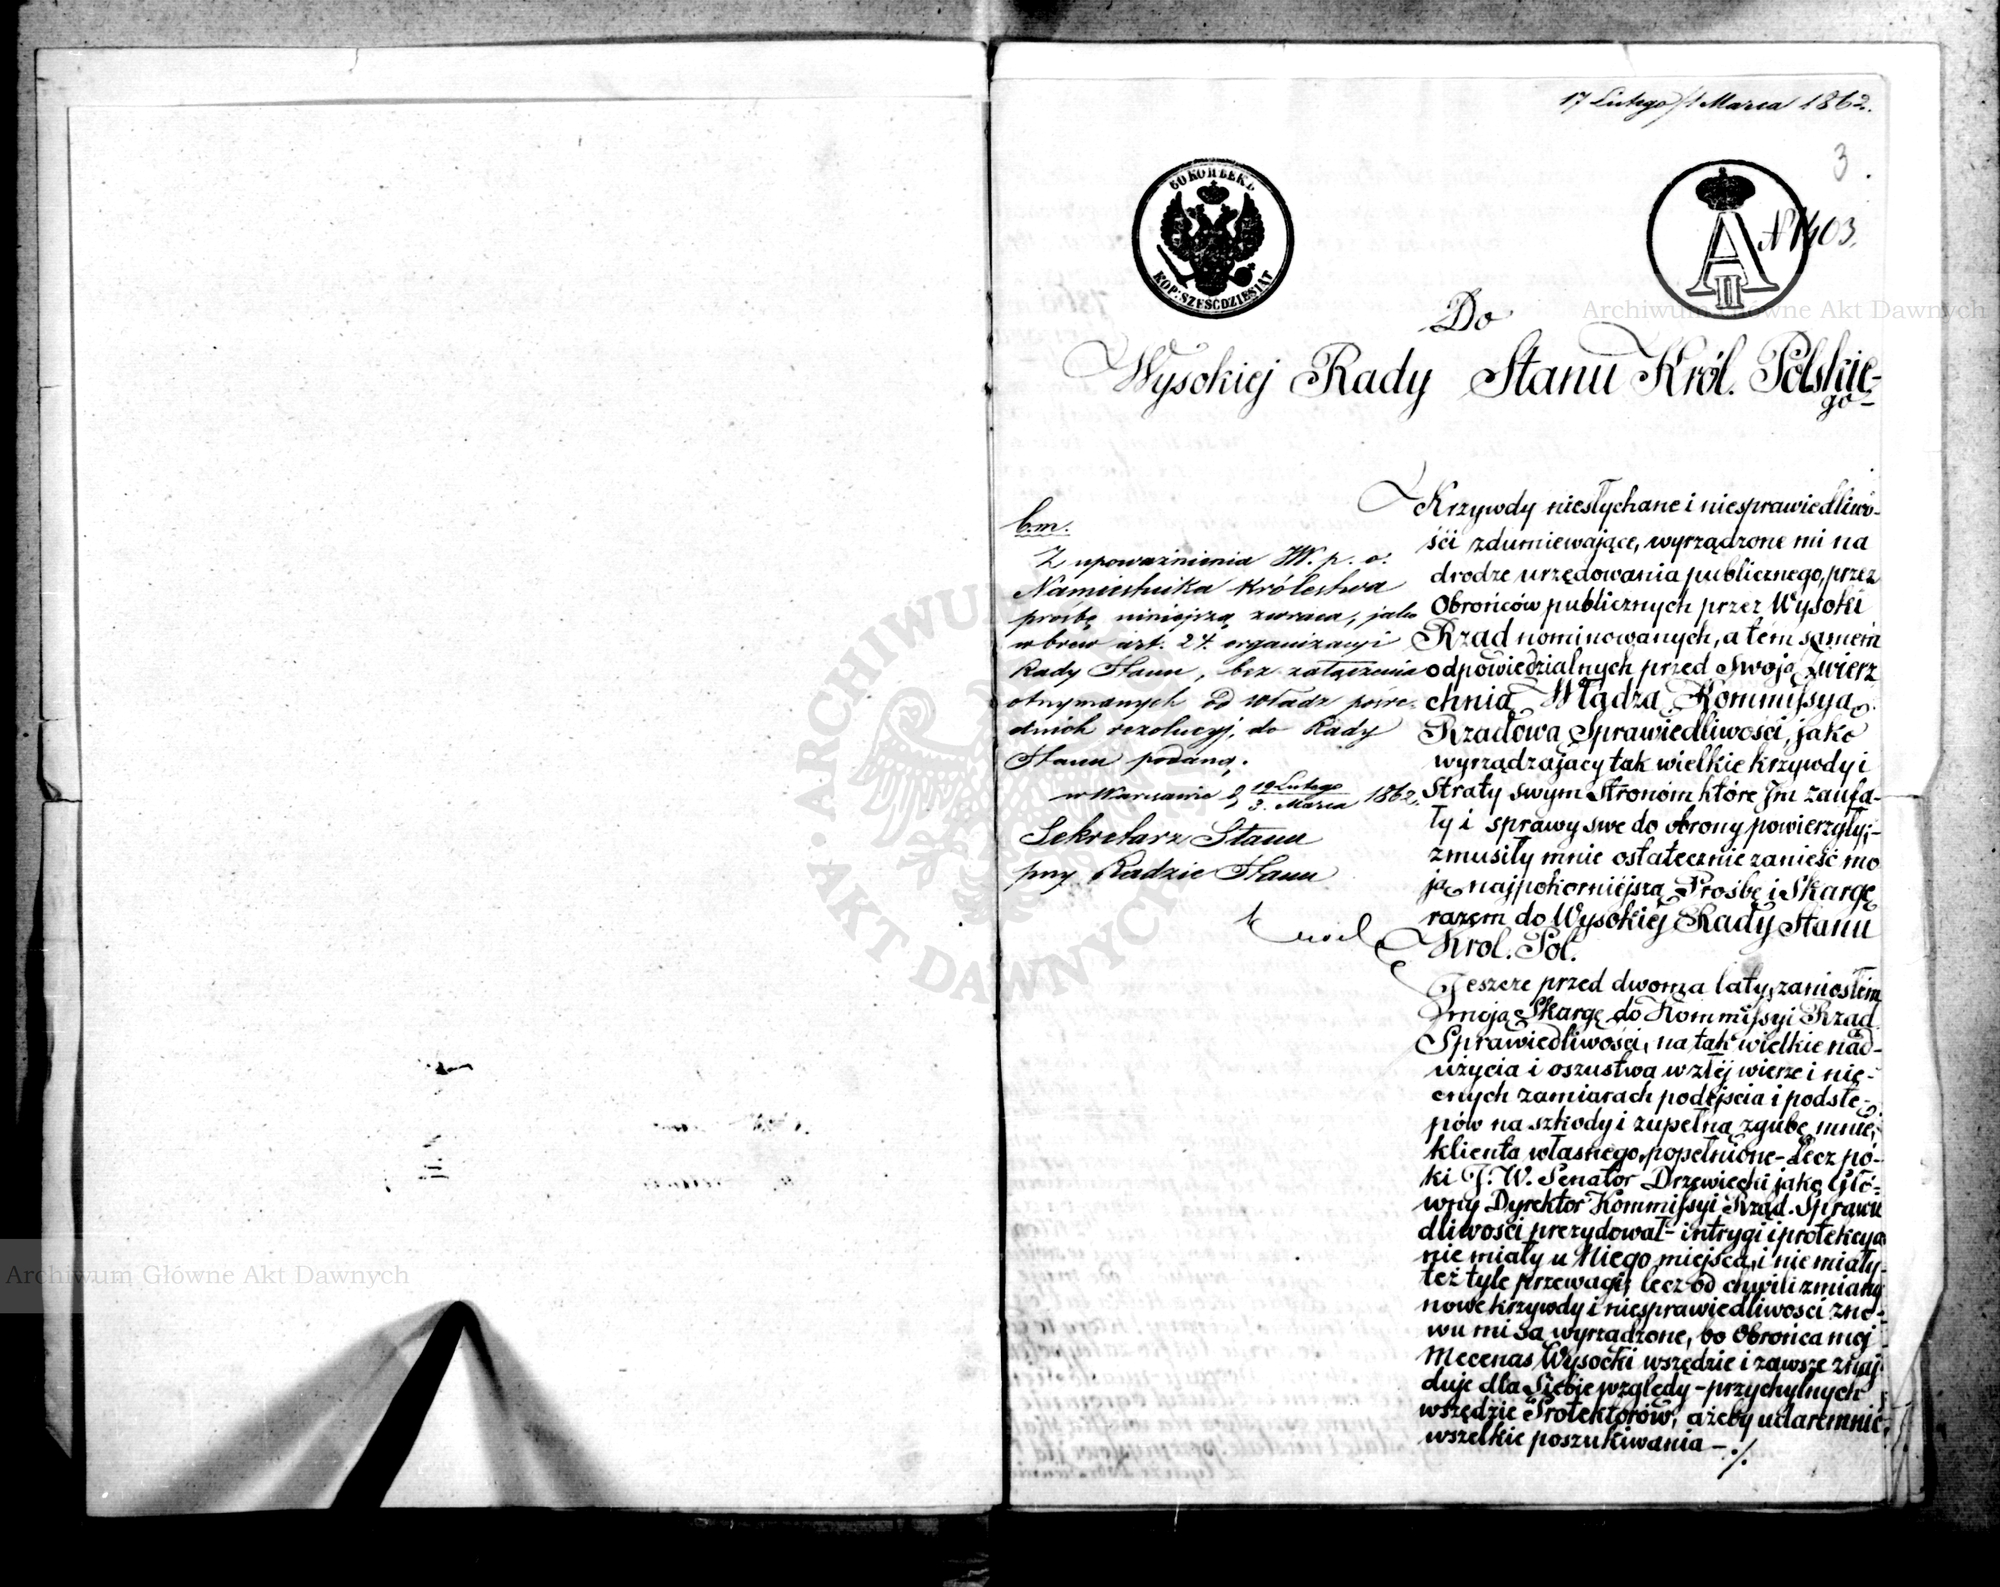 17 Lutego/1 Marca 1862.
3
60 КОПѢЕКЪ
KOP: SZEŚĆDZIESIĄT
A II
N 1403.
Do
Wysokiej Rady Stanu Król. Polskie-
go-
Krzywdy niesłychane i niesprawiedliwo-
ści zdumiewające, wyrządzone mi na
drodze urzędowania publicznego, przez
Obrońców publicznych przez Wysoki
Rząd nominowanych, a tém samém
odpowiedzialnych przed swoją Zwierz
chnią Władzą Kommissyą
Rządową Sprawiedliwości, jako
wyrządzający tak wielkie krzywdy i
Straty swym Stronom które Jm zaufa-
ły i sprawy swe do obrony powierzyły;-
zmusiły mnie ostatecznie zanieść mo
ją najpokorniejszą Prośbę i Skargę
razem do Wysokiej Rady Stanu
Król. Pol.
Jeszcze przed dwoma laty, zaniosłem
moją Skargę do Kommissyi Rząd.
Sprawiedliwości, na tak wielkie nad-
użycia i oszustwa w złéj wierze i nie-
cnych zamiarach podejścia i podstę-
pów na szkody i zupełną zgubę mnie,
klienta własnego, popełnione- Lecz pó-
ki J. W. Senator Drzewiecki jako Głó-
wny Dyrektor Kommissyi Rząd. Sprawie
dliwości prezydował- intrygi i protekcya
nie miały u Niego miejsca, i nie miały
też tyle przewagi; lecz od chwili zmiany
nowe krzywdy i niesprawiedliwości zno-
wu mi są wyrządzone, bo Obrońca mój
Mecenas Wysocki wszędzie i zawsze znaj
duje dla Siebie względy - przychylnych
wszędzie Protektorów, ażeby udaremnić
wszelkie poszukiwania - ./.
b.m.
Z upoważnienia JW. p. o.
Namiestnika Królestwa
prośbę niniejszą zwraca, jako
wbrew art. 24. organizacyi
Rady Stanu, bez załączenia
otrzymanych od władz pośre-
dnich rezolucyj, do Rady
Stanu podaną.
w Warszawie d. 19 Lutego 1862.
3. Marca
Sekretarz Stanu
przy Radzie Stanu
Archiwum Główne Akt Dawnych
Archiwum Główne Akt Dawnych
ARCHIWUM
AKT DAWNYCH